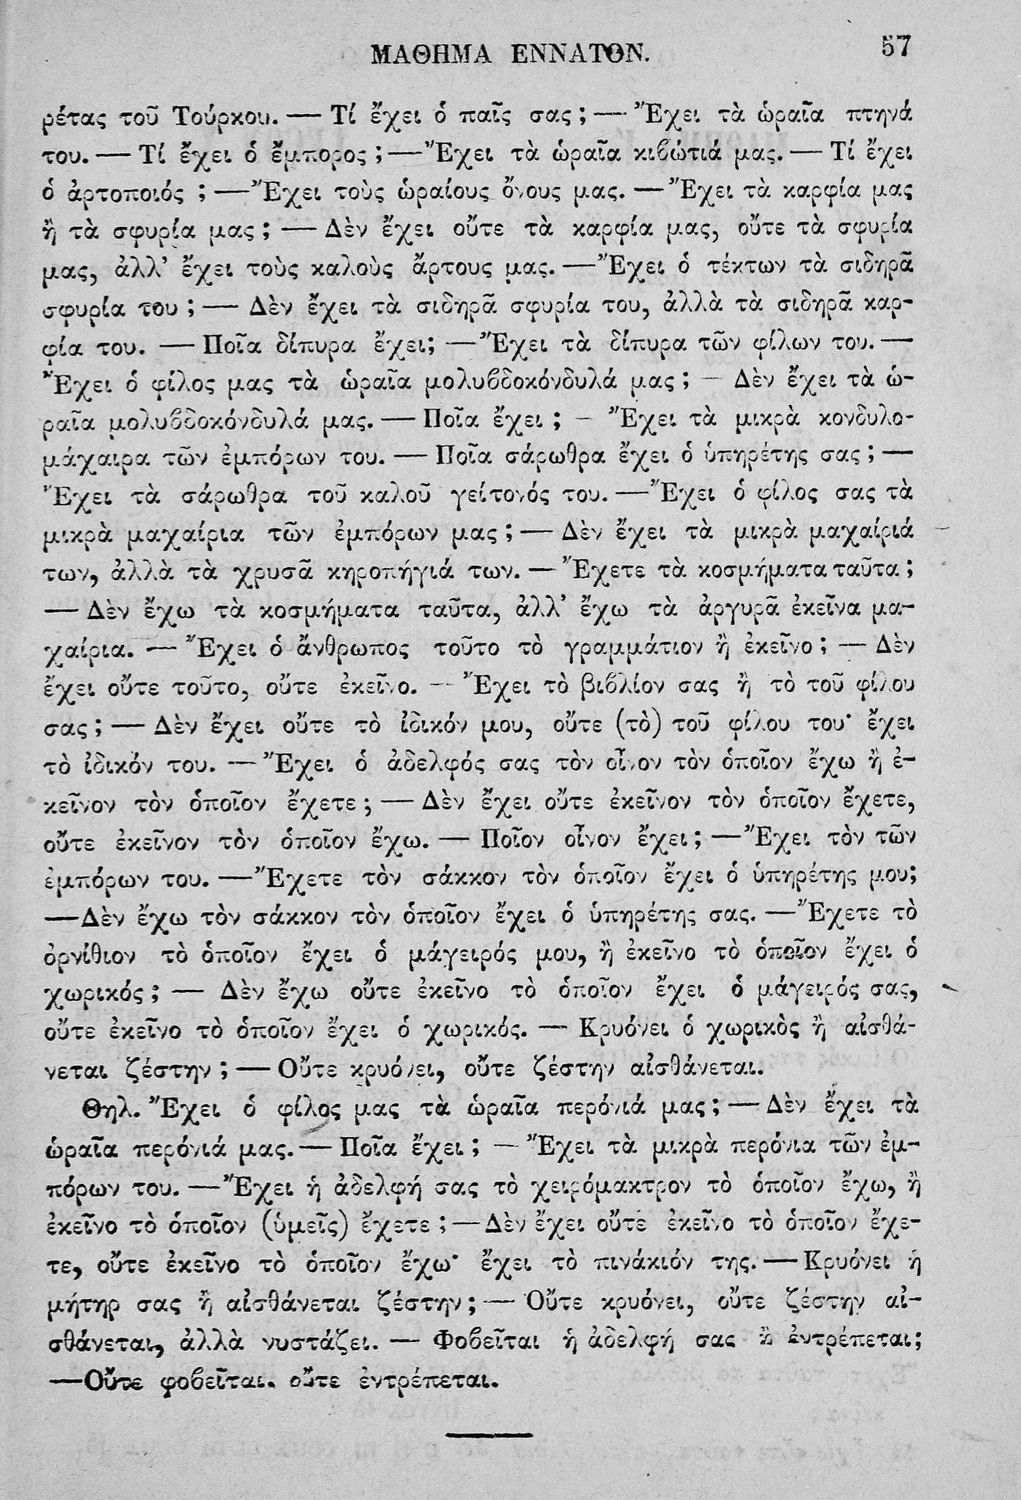 ΜΑΘΗΜΑ ΕΝΝΑΤΟΝ. 57
ρέτας τοῦ Τούρκου. — Τί ἔχει ὁ παῖς σας; — Ἔχει τὰ ὡραῖα πτηνά
του. — Τί ἔχει ὁ ἔμπορος; — Ἔχει τὰ ὡραῖα κιβώτιά μας. — Τί ἔχει
ὁ ἀρτοποιός; — Ἔχει τοὺς ὡραίους ὄνους μας. — Ἔχει τὰ καρφία μας
ἢ τὰ σφυρία μας; — Δὲν ἔχει οὔτε τὰ καρφία μας, οὔτε τὰ σφυρία
μας, ἀλλ’ ἔχει τοὺς καλοὺς ἄρτους μας. — Ἔχει ὁ τέκτων τὰ σιδηρᾶ
σφυρία του; — Δὲν ἔχει τὰ σιδηρᾶ σφυρία του, ἀλλὰ τὰ σιδηρᾶ καρ-
φία του. — Ποῖα δίπυρα ἔχει; — Ἔχει τὰ δίπυρα τῶν φίλων του. —
Ἔχει ὁ φίλος μας τὰ ὡραῖα μολυβδοκόνδυλά μας; — Δὲν ἔχει τὰ ὡ-
ραῖα μολυβδοκόνδυλά μας. — Ποῖα ἔχει; — Ἔχει τὰ μικρὰ κονδυλο-
μάχαιρα τῶν ἐμπόρων του. — Ποῖα σάρωθρα ἔχει ὁ ὑπηρέτης σας; —
Ἔχει τὰ σάρωθρα τοῦ καλοῦ γείτονός του. — Ἔχει ὁ φίλος σας τὰ
μικρὰ μαχαίρια τῶν ἐμπόρων μας; — Δὲν ἔχει τὰ μικρὰ μαχαίριά
των, ἀλλὰ τὰ χρυσᾶ κηροπήγιά των. — Ἔχετε τὰ κοσμήματα ταῦτα;
— Δὲν ἔχω τὰ κοσμήματα ταῦτα, ἀλλ’ ἔχω τὰ ἀργυρᾶ ἐκεῖνα μα-
χαίρια. — Ἔχει ὁ ἄνθρωπος τοῦτο τὸ γραμμάτιον ἢ ἐκεῖνο; — Δὲν
ἔχει οὔτε τοῦτο, οὔτε ἐκεῖνο. — Ἔχει τὸ βιβλίον σας ἢ τὸ τοῦ φίλου
σας; — Δὲν ἔχει οὔτε τὸ ἰδικόν μου, οὔτε (τὸ) τοῦ φίλου του· ἔχει
τὸ ἰδικόν του. — Ἔχει ὁ ἀδελφός σας τὸν οἶνον τὸν ὁποῖον ἔχω ἢ ἐ-
κεῖνον τὸν ὁποῖον ἔχετε; — Δὲν ἔχει οὔτε ἐκεῖνον τὸν ὁποῖον ἔχετε,
οὔτε ἐκεῖνον τὸν ὁποῖον ἔχω. — Ποῖον οἶνον ἔχει; — Ἔχει τὸν τῶν
ἐμπόρων του. — Ἔχετε τὸν σάκκον τὸν ὁποῖον ἔχει ὁ ὑπηρέτης μου;
— Δὲν ἔχω τὸν σάκκον τὸν ὁποῖον ἔχει ὁ ὑπηρέτης σας. — Ἔχετε τὸ
ὀρνίθιον τὸ ὁποῖον ἔχει ὁ μάγειρός μου, ἢ ἐκεῖνο τὸ ὁποῖον ἔχει ὁ
χωρικός; — Δὲν ἔχω οὔτε ἐκεῖνο τὸ ὁποῖον ἔχει ὁ μάγειρός σας,
οὔτε ἐκεῖνο τὸ ὁποῖον ἔχει ὁ χωρικός. — Κρυόνει ὁ χωρικὸς ἢ αἰσθά-
νεται ζέστην; — Οὔτε κρυόνει, οὔτε ζέστην αἰσθάνεται.
Θηλ. Ἔχει ὁ φίλος μας τὰ ὡραῖα περόνιά μας; — Δὲν ἔχει τὰ
ὡραῖα περόνιά μας. — Ποῖα ἔχει; — Ἔχει τὰ μικρὰ περόνια τῶν ἐμ-
πόρων του. — Ἔχει ἡ ἀδελφή σας τὸ χειρόμακτρον τὸ ὁποῖον ἔχω, ἢ
ἐκεῖνο τὸ ὁποῖον (ὑμεῖς) ἔχετε; — Δὲν ἔχει οὔτε ἐκεῖνο τὸ ὁποῖον ἔχε-
τε, οὔτε ἐκεῖνο τὸ ὁποῖον ἔχω· ἔχει τὸ πινάκιόν της. — Κρυόνει ἡ
μήτηρ σας ἢ αἰσθάνεται ζέστην; — Οὔτε κρυόνει, οὔτε ζέστην αἰ-
σθάνεται, ἀλλὰ νυστάζει. — Φοβεῖται ἡ ἀδελφή σας ἢ ἐντρέπεται;
— Οὔτε φοβεῖται, οὔτε ἐντρέπεται.